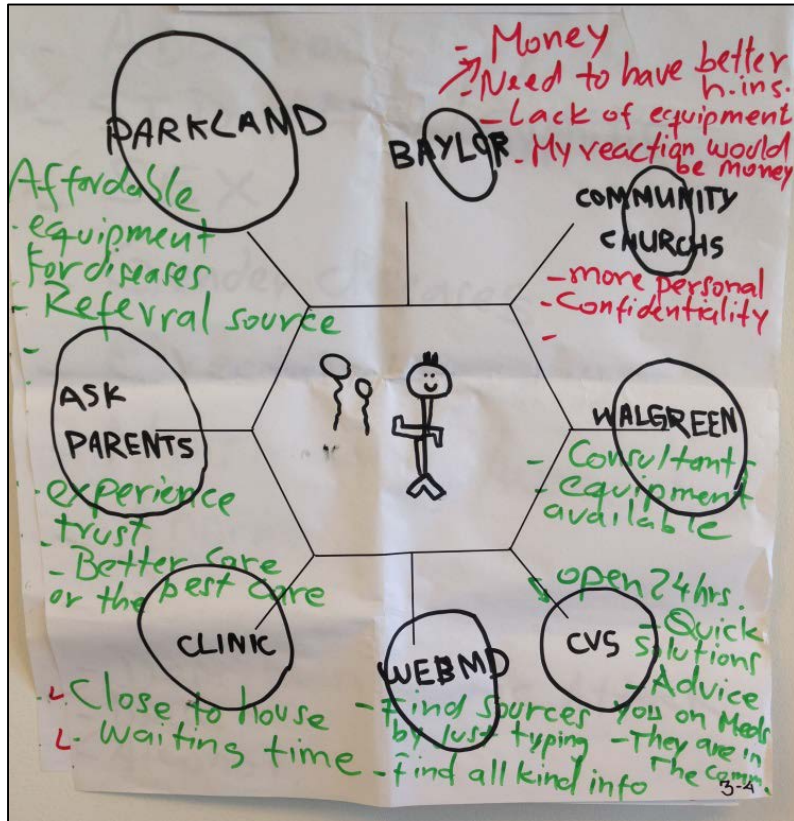 PARKLAND
Affordable
- equipment
for diseases
- Referral source
-
BAYLOR
- Money
- Need to have better
h.ins.
- Lack of equipment
- My reaction would
be money
COMMUNITY
CHURCHS
- more personal
- Confidentiality
-
ASK
PARENTS
- experience
- trust
- Better care
or the best care
WALGREEN
- Consultant
- equipment
available
CLINIC
- Close to house
- waiting time
WEBMD
- Find sources
by Just typing
- find all kind info
CVS
open 24hrs.
- Quick
solutions
- Advice
you on Meds
- They are in
The comm.
3-4